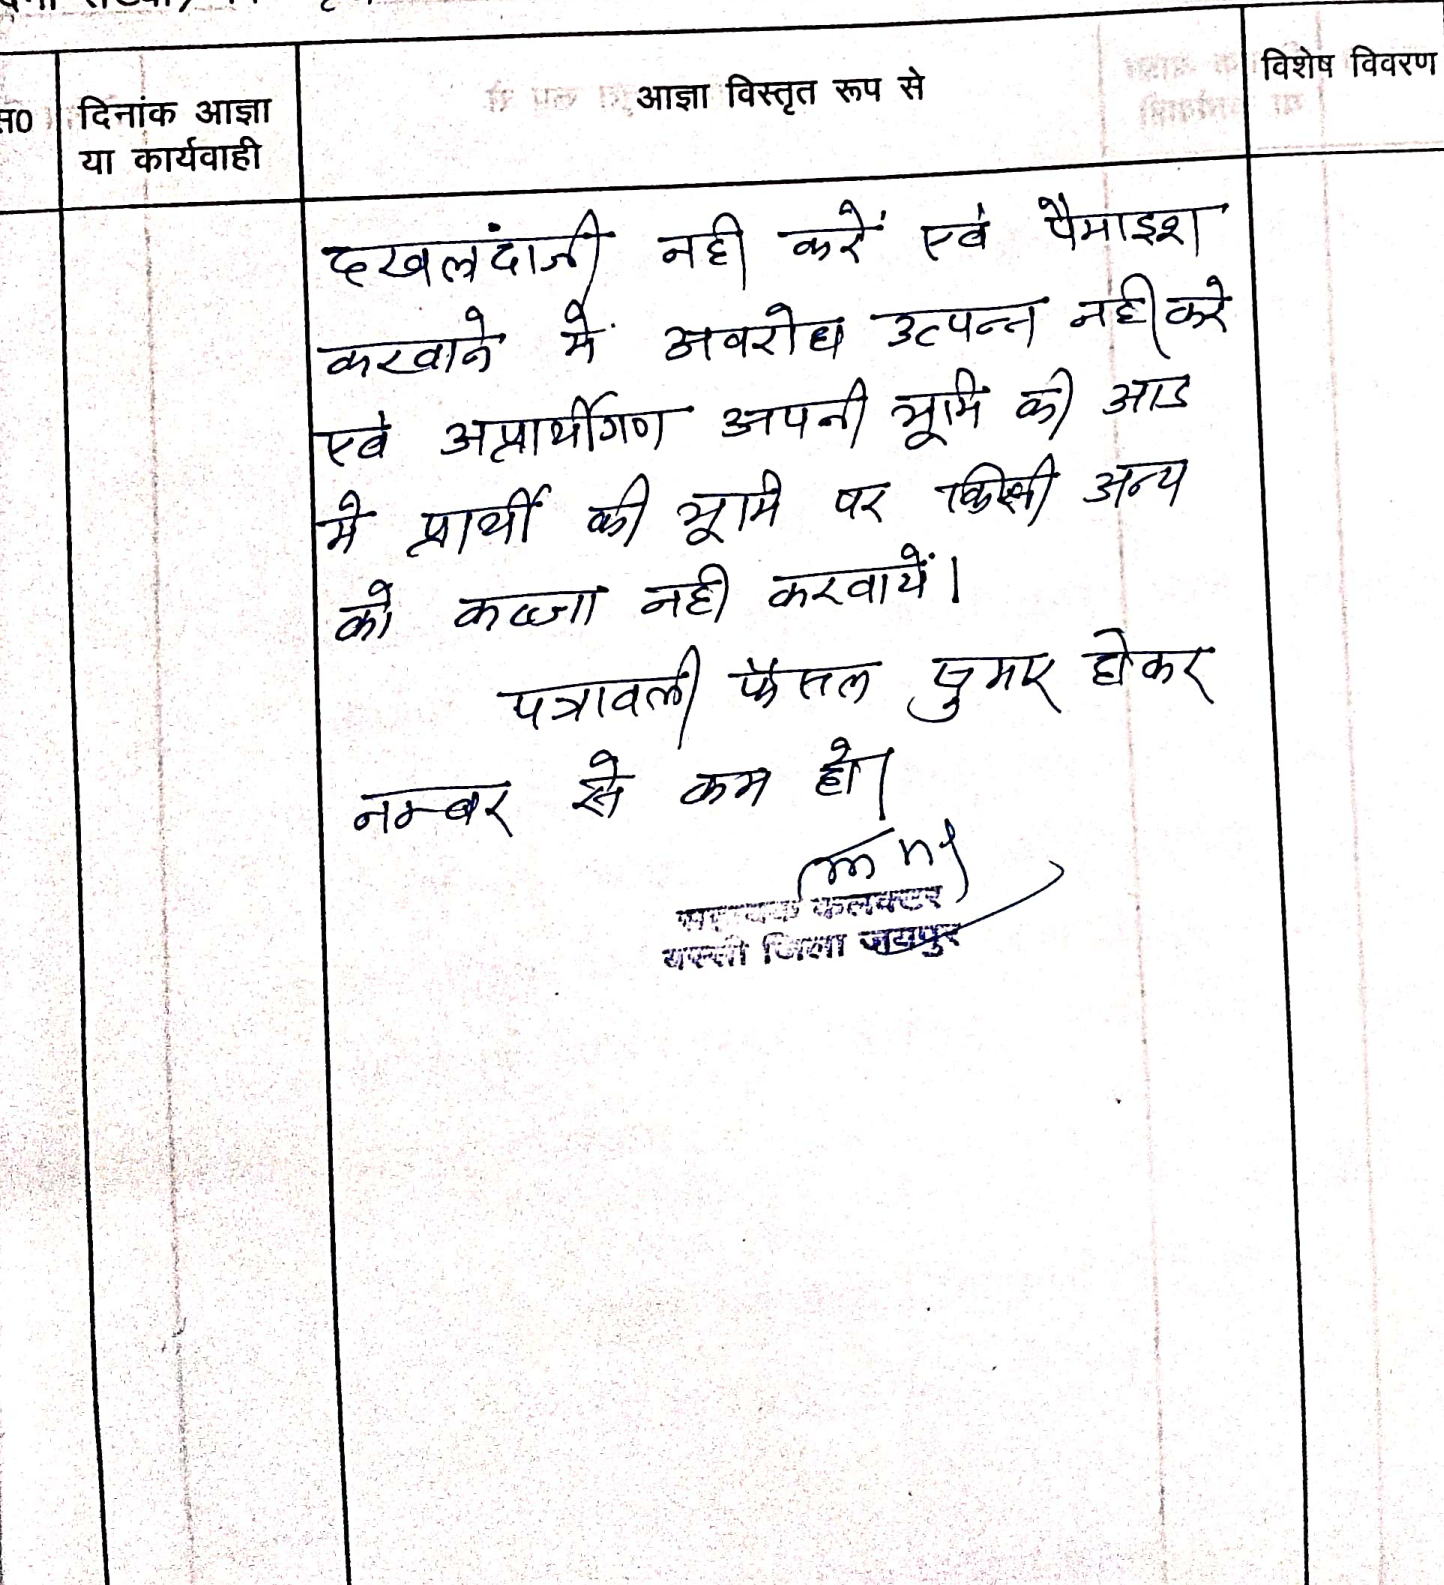 स0
दिनांक आज्ञा
या कार्यवाही
आज्ञा विस्तृत रूप से
विशेष विवरण
दखलंदाजी नही करें एवं पैमाइश
करवाने में अवरोध उत्पन्न नही करे
एवं अप्रार्थीगण अपनी भूमि की आड
मे प्रार्थी की भूमि पर किसी अन्य
को कब्जा नही करवायें।
पत्रावली फैसल सुमार होकर
नम्बर से कम हो।
सहायक कलक्टर
बस्सी जिला जयपुर